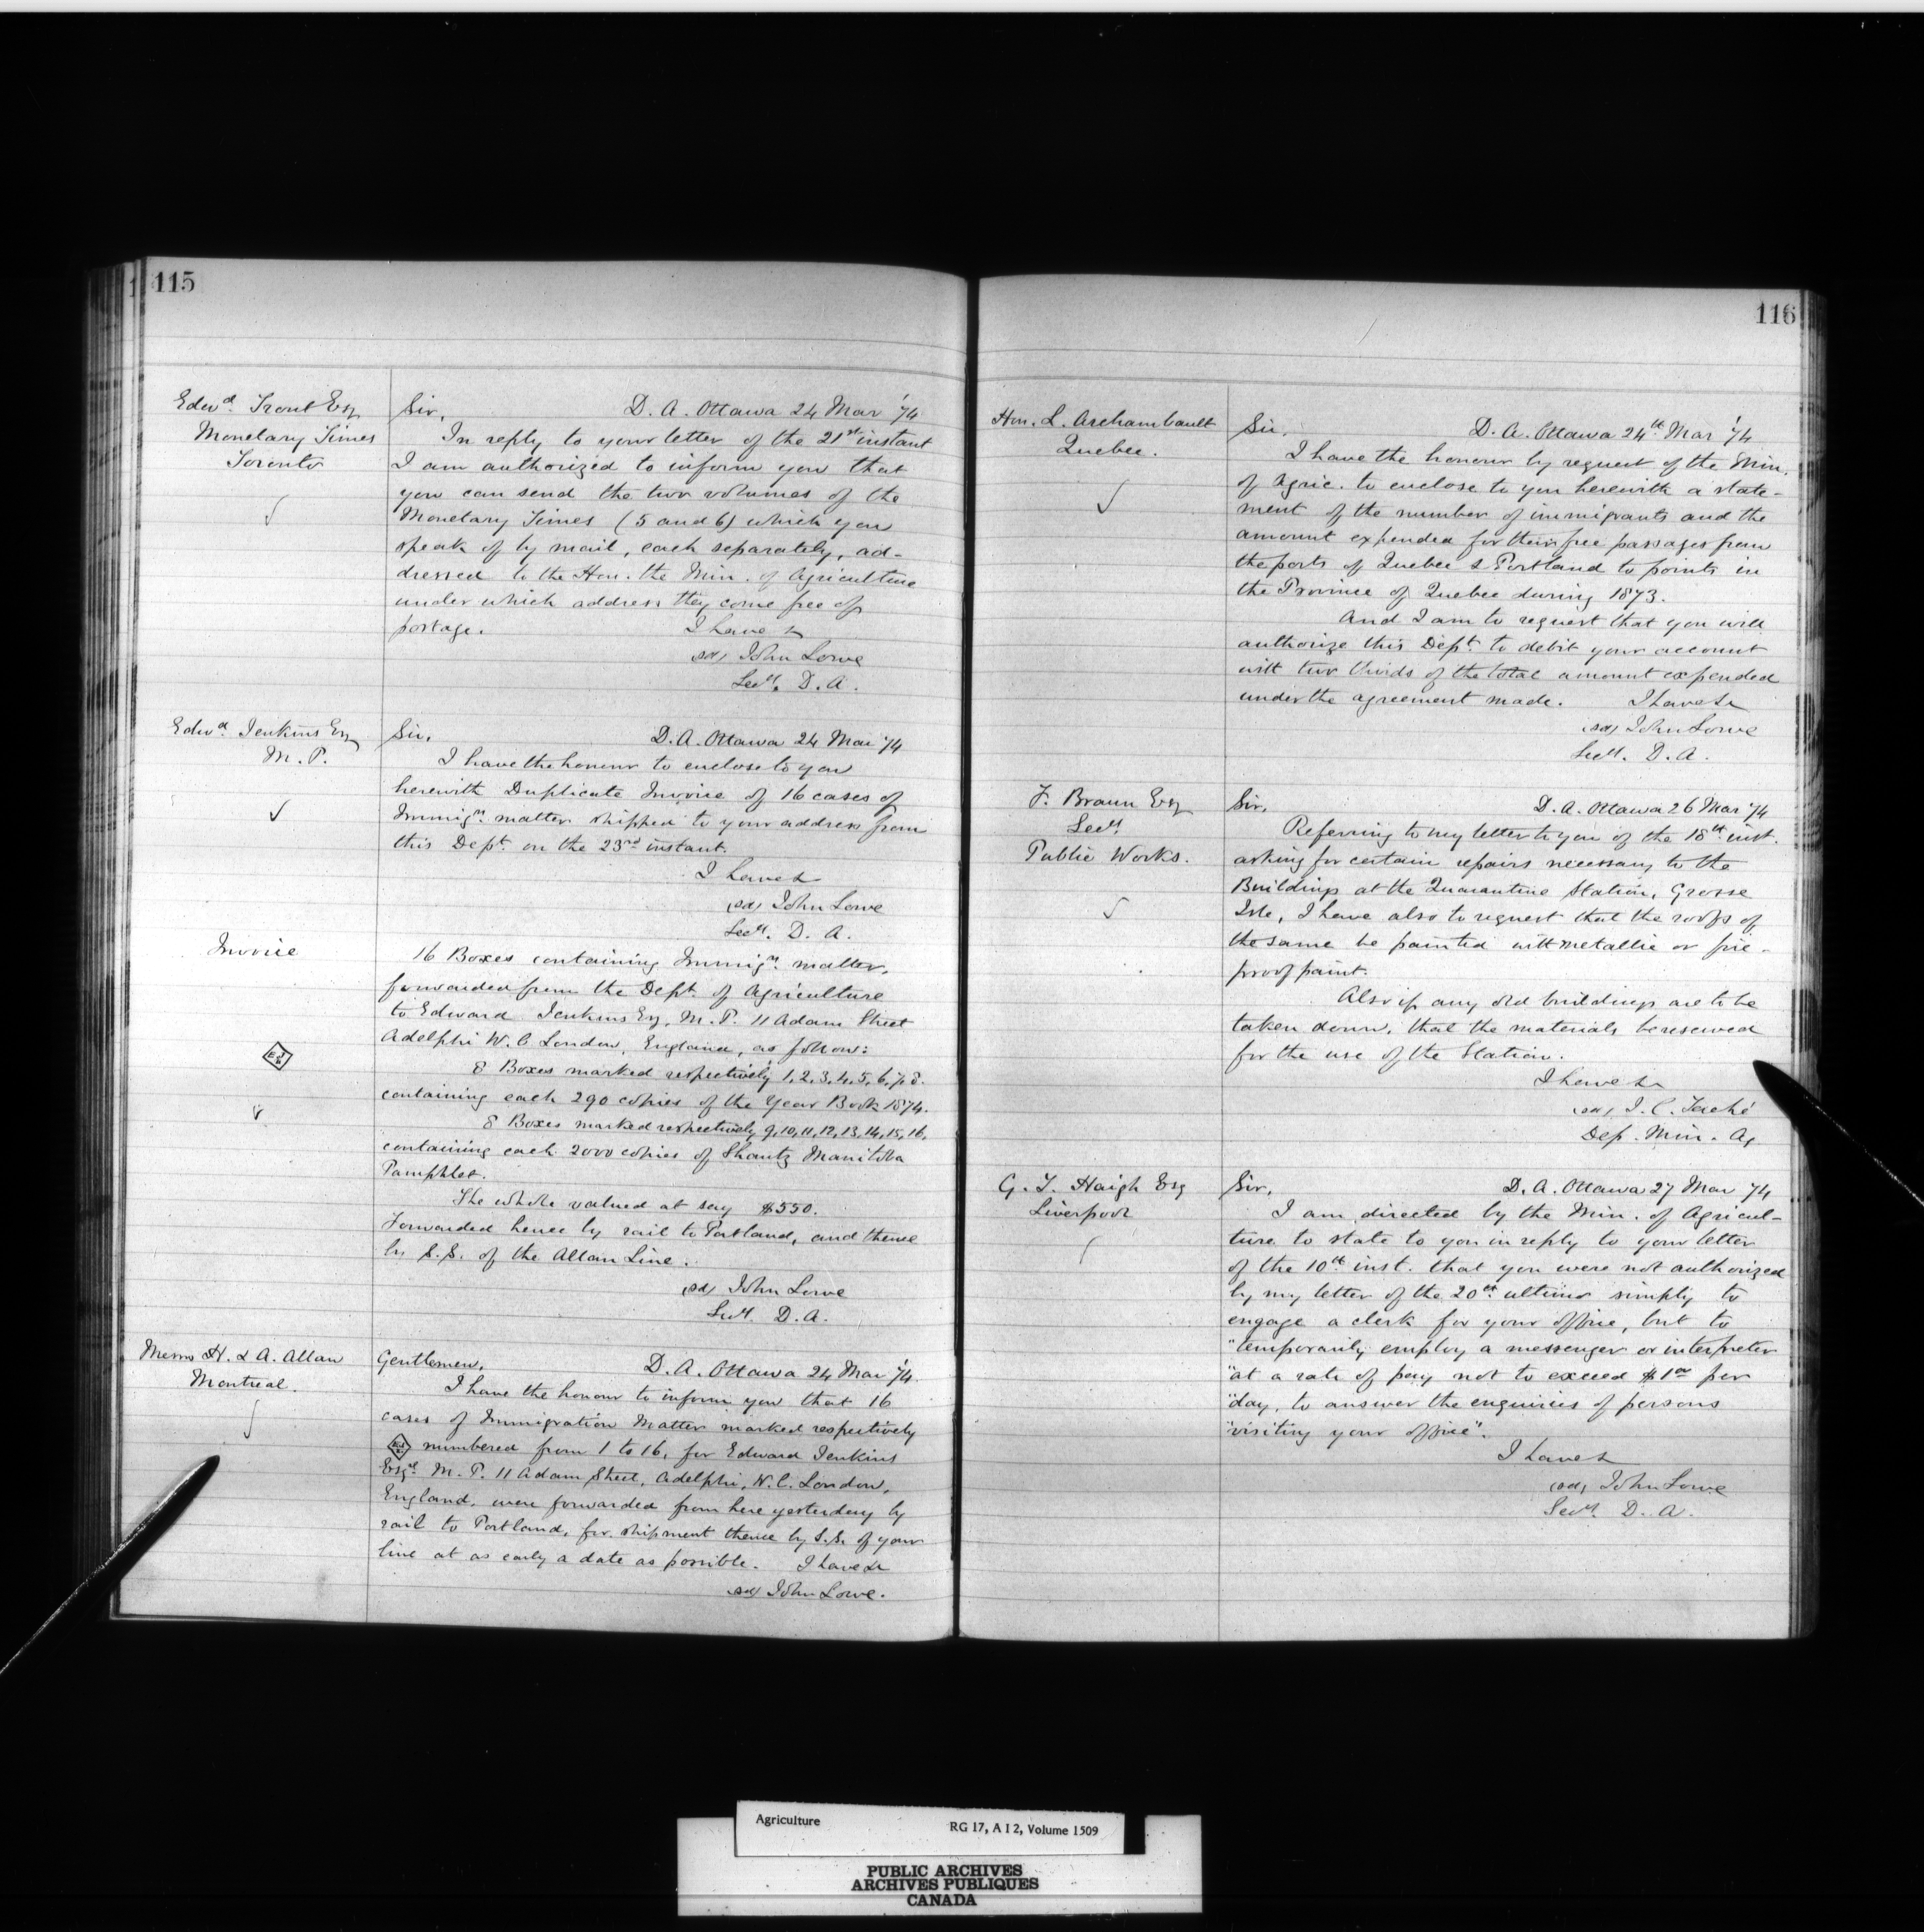 115
Edwd. Trout Esq
Monetary Times
Toronto
Sir, D. A. Ottawa 24 Mar '74
In reply to your letter of the 21st instant
I am authorized to inform you that
you can send the two volumes of the
Monetary Times (5 and 6) which you
speak of by mail, each separately, ad-
dressed to the Hon. the Min. of Agriculture
under which address they come free of
postage. I have &
(sd) John Lowe
Secy. D. A.
Edwd. Jenkins Esq
M. P.
Sir, D. A. Ottawa 24 Mar '74
I have the honour to enclose to you
herewith Duplicate Invoice of 16 cases of
Immign. matter shipped to your address from
this Dept. on the 23rd instant.
I have &
(sd) John Lowe
Secy. D. A.
Invoice
16 Boxes containing Immign. matter,
forwarded from the Dept. of Agriculture
to Edward Jenkins Esq, M. P. 11 Adam Street
Adelphi W. C London, England, as follow:
8 Boxes marked respectively 1, 2, 3, 4, 5, 6, 7, 8.
containing each 290 copies of the Year Book 1874.
8 Boxes marked respectively 9, 10, 11, 12, 13, 14, 15, 16,
containing each 2000 copies of Shantz Manitoba
Pamphlet.
The whole valued at say $550.
Forwarded hence by rail to Portland, and thence
by S.S. of the Allan Line.
(sd) John Lowe
Secy. D. A.
Messrs H. & A. Allan
Montreal.
Gentlemen, D. A. Ottawa 24 Mar '74.
I have the honour to inform you that 16
cases of Immigration Matter marked respectively
numbered from 1 to 16, for Edward Jenkins
Esqre. M. P. 11 Adam Street, Adelphi, W. C. London,
England, were forwarded from here yesterday by
rail to Portland, for shipment thence by S.S. of your
line at as early a date as possible. I have &
(sd) John Lowe.
116
Hon. L. Archambault
Quebec.
Sir, D. A. Ottawa 24th Mar '74
I have the honour by request of the Min.
of Agric. to enclose to you herewith a state-
ment of the number of immigrants and the
amount expended for their free passages from
the ports of Quebec & Portland to points in
the Province of Quebec during 1873.
And I am to request that you will
authorize this Dept. to debit your account
with two thirds of the total amount expended
under the agreement made. I have &
(sd) John Lowe
Secy. D. A.
F. Braun Esq
Secy.
Public Works.
Sir, D. A. Ottawa 26 Mar '74
Referring to my letter to you of the 18th inst.
asking for certain repairs necessary to the
Buildings at the Quarantine Station, Grosse
Isle, I have also to request that the roofs of
the same be painted with metallic or fire-
proof paint.
Also if any old buildings are to be
taken down, that the materials be reserved
for the use of the Station.
I have &
(sd) J. C. Taché
Dep. Min. Ag
G. T. Haigh Esq
Liverpool
Sir, D. A. Ottawa 27 Mar 74
I am directed by the Min. of Agricul-
ture to state to you in reply to your letter
of the 10th inst. that you were not authorized
by my letter of the 20th ultimo simply to
engage a clerk for your office, but to
"temporarily employ a messenger or interpreter
"at a rate of pay not to exceed $1 00 per
"day, to answer the enquiries of persons
"visiting your office".
I have &
(sd) John Lowe
Secy. D. A.
Agriculture RG 17, A I 2, Volume 1509
PUBLIC ARCHIVES
ARCHIVES PUBLIQUES
CANADA